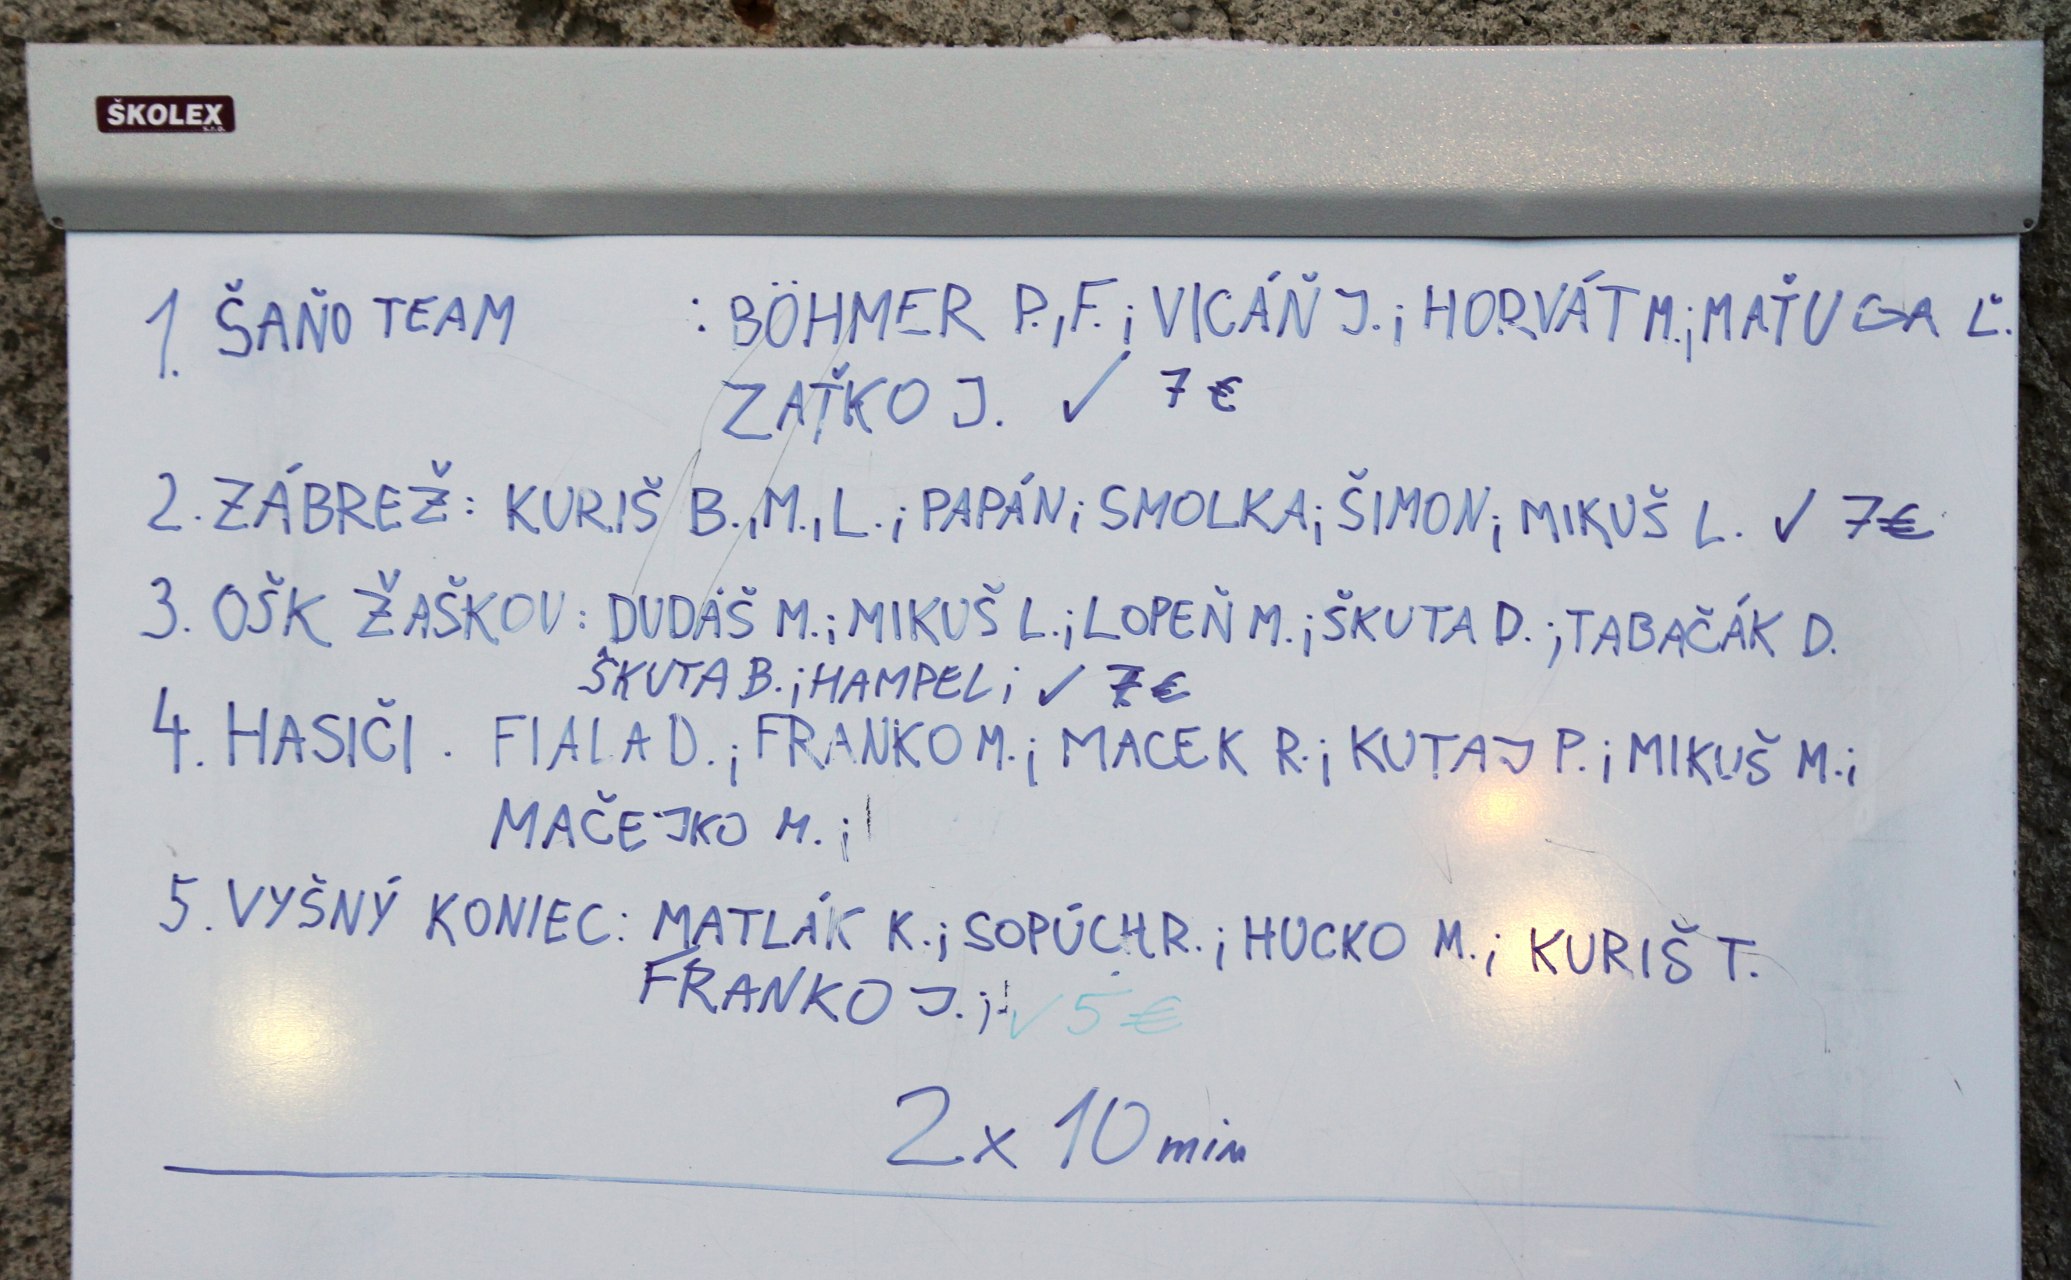 ŠKOLEX
s.r.o.
1. ŠAŇO TEAM : BÖHMER P., F.; VICÁŇ J.; HORVÁT M.; MAŤUGA Ľ.
ZAŤKO J. ✓ 7 €
2. ZÁBREŽ: KURIŠ B., M., L.; PAPÁN; SMOLKA; ŠIMON; MIKUŠ L. ✓ 7€
3. OŠK ŽAŠKOV: DUDÁŠ M.; MIKUŠ L.; LOPEŇ M.; ŠKUTA D.; TABAČÁK D.
ŠKUTA B.; HAMPEL; ✓ 7€
4. HASIČI . FIALA D.; FRANKO M.; MACEK R.; KUTAJ P.; MIKUŠ M.;
MAČEJKO M.;
5. VYŠNÝ KONIEC: MATLÁK K.; SOPÚCH R.; HUCKO M.; KURIŠ T.
FRANKO J.; ✓ 5 €
2 x 10 min